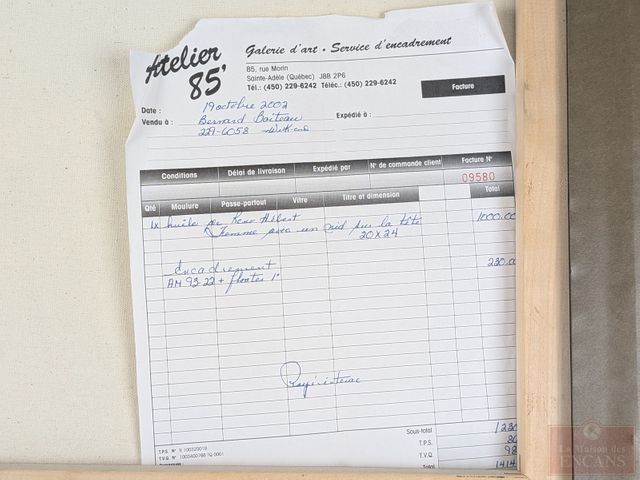 Atelier 85'
Galerie d'art • Service d'encadrement
85, rue Morin
Sainte-Adèle (Québec) J8B 2P6
Tél.: (450) 229-6242 Téléc.: (450) 229-6242
Facture
Date : 19 octobre 2002
Vendu à : Bernard Boiteau
Expédié à :
229-6058
Conditions Délai de livraison Expédié par N° de commande client Facture N°
09580
Qté Moulure Passe-partout Vitre Titre et dimension Total
1x huile de Hébert 1000.00
Femme avec un nid sur la tête
20x24
Encadrement 230.00
AM 93-22 + floater 1"
Sous-total 1230
T.P.S. N° R 100320019 T.P.S. 86
T.V.Q. N° 1003400788 TQ 0001 T.V.Q. 98
Total 1414
La Maison des
ENCANS